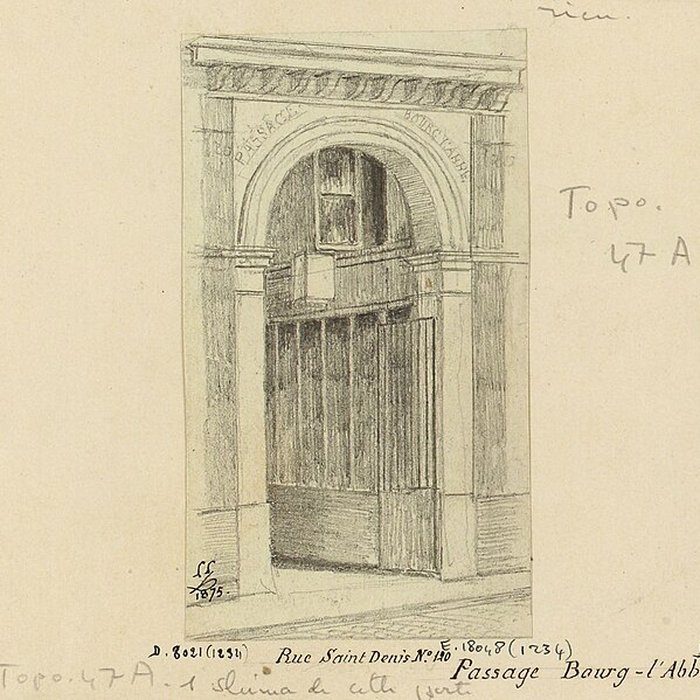 rien.
PASSAGE BOURG L'ABBÉ
Topo.
47 A
LL
1875.
D. 8021 (1234)
E. 18048 (1234)
Rue Saint Denis No. 140
Passage Bourg-l'Abb
Topo. 47 A - 1 de cette porte